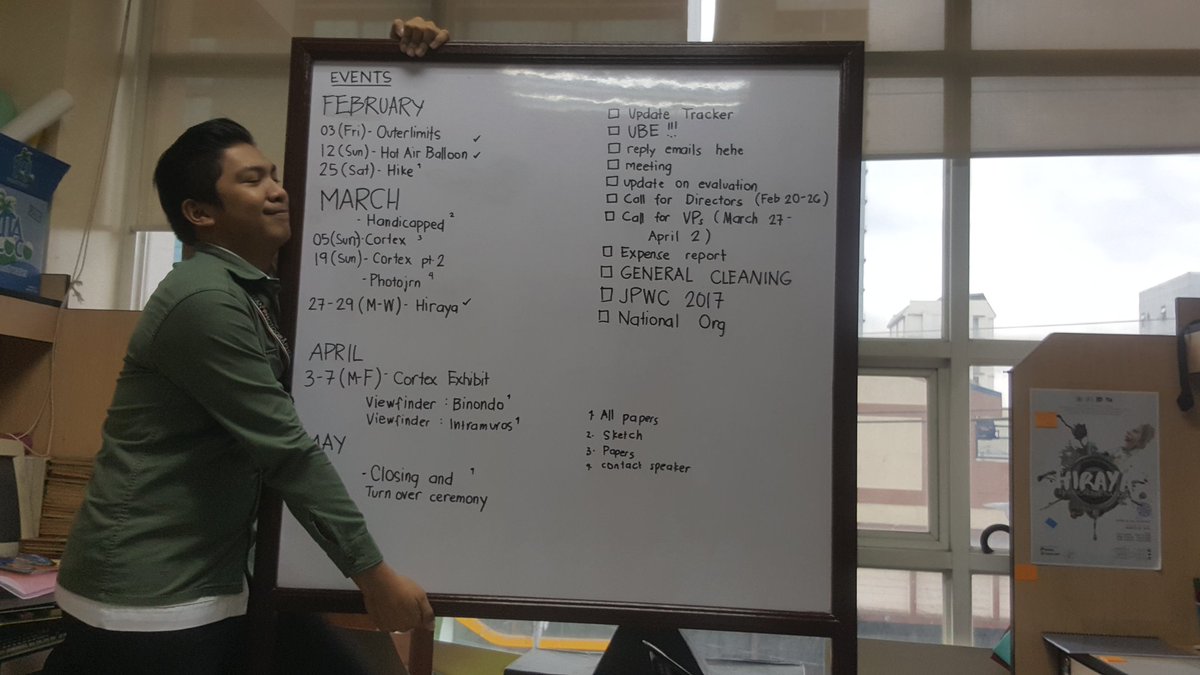 EVENTS
FEBRUARY
03 (Fri) - Outerlimits ✓
12 (Sun) - Hot Air Balloon ✓
25 (Sat) - Hike ¹
MARCH
- Handicapped ²
05 (Sun) - Cortex ³
19 (Sun) - Cortex pt. 2
- Photojrn ⁴
27-29 (M-W) - Hiraya ✓
APRIL
3-7 (M-F) - Cortex Exhibit
Viewfinder : Binondo ¹
Viewfinder : Intramuros ¹
MAY
- Closing and ¹
Turn over ceremony
☐ Update Tracker
☐ UBE !!!
☐ reply emails hehe
☐ meeting
☐ update on evaluation
☐ Call for Directors (Feb 20-26)
☐ Call for VPs (March 27-
April 2)
☐ Expense report
☐ GENERAL CLEANING
☐ JPWC 2017
☐ National Org
1. All papers
2. Sketch
3. Papers
4. contact speaker
HIRAYA